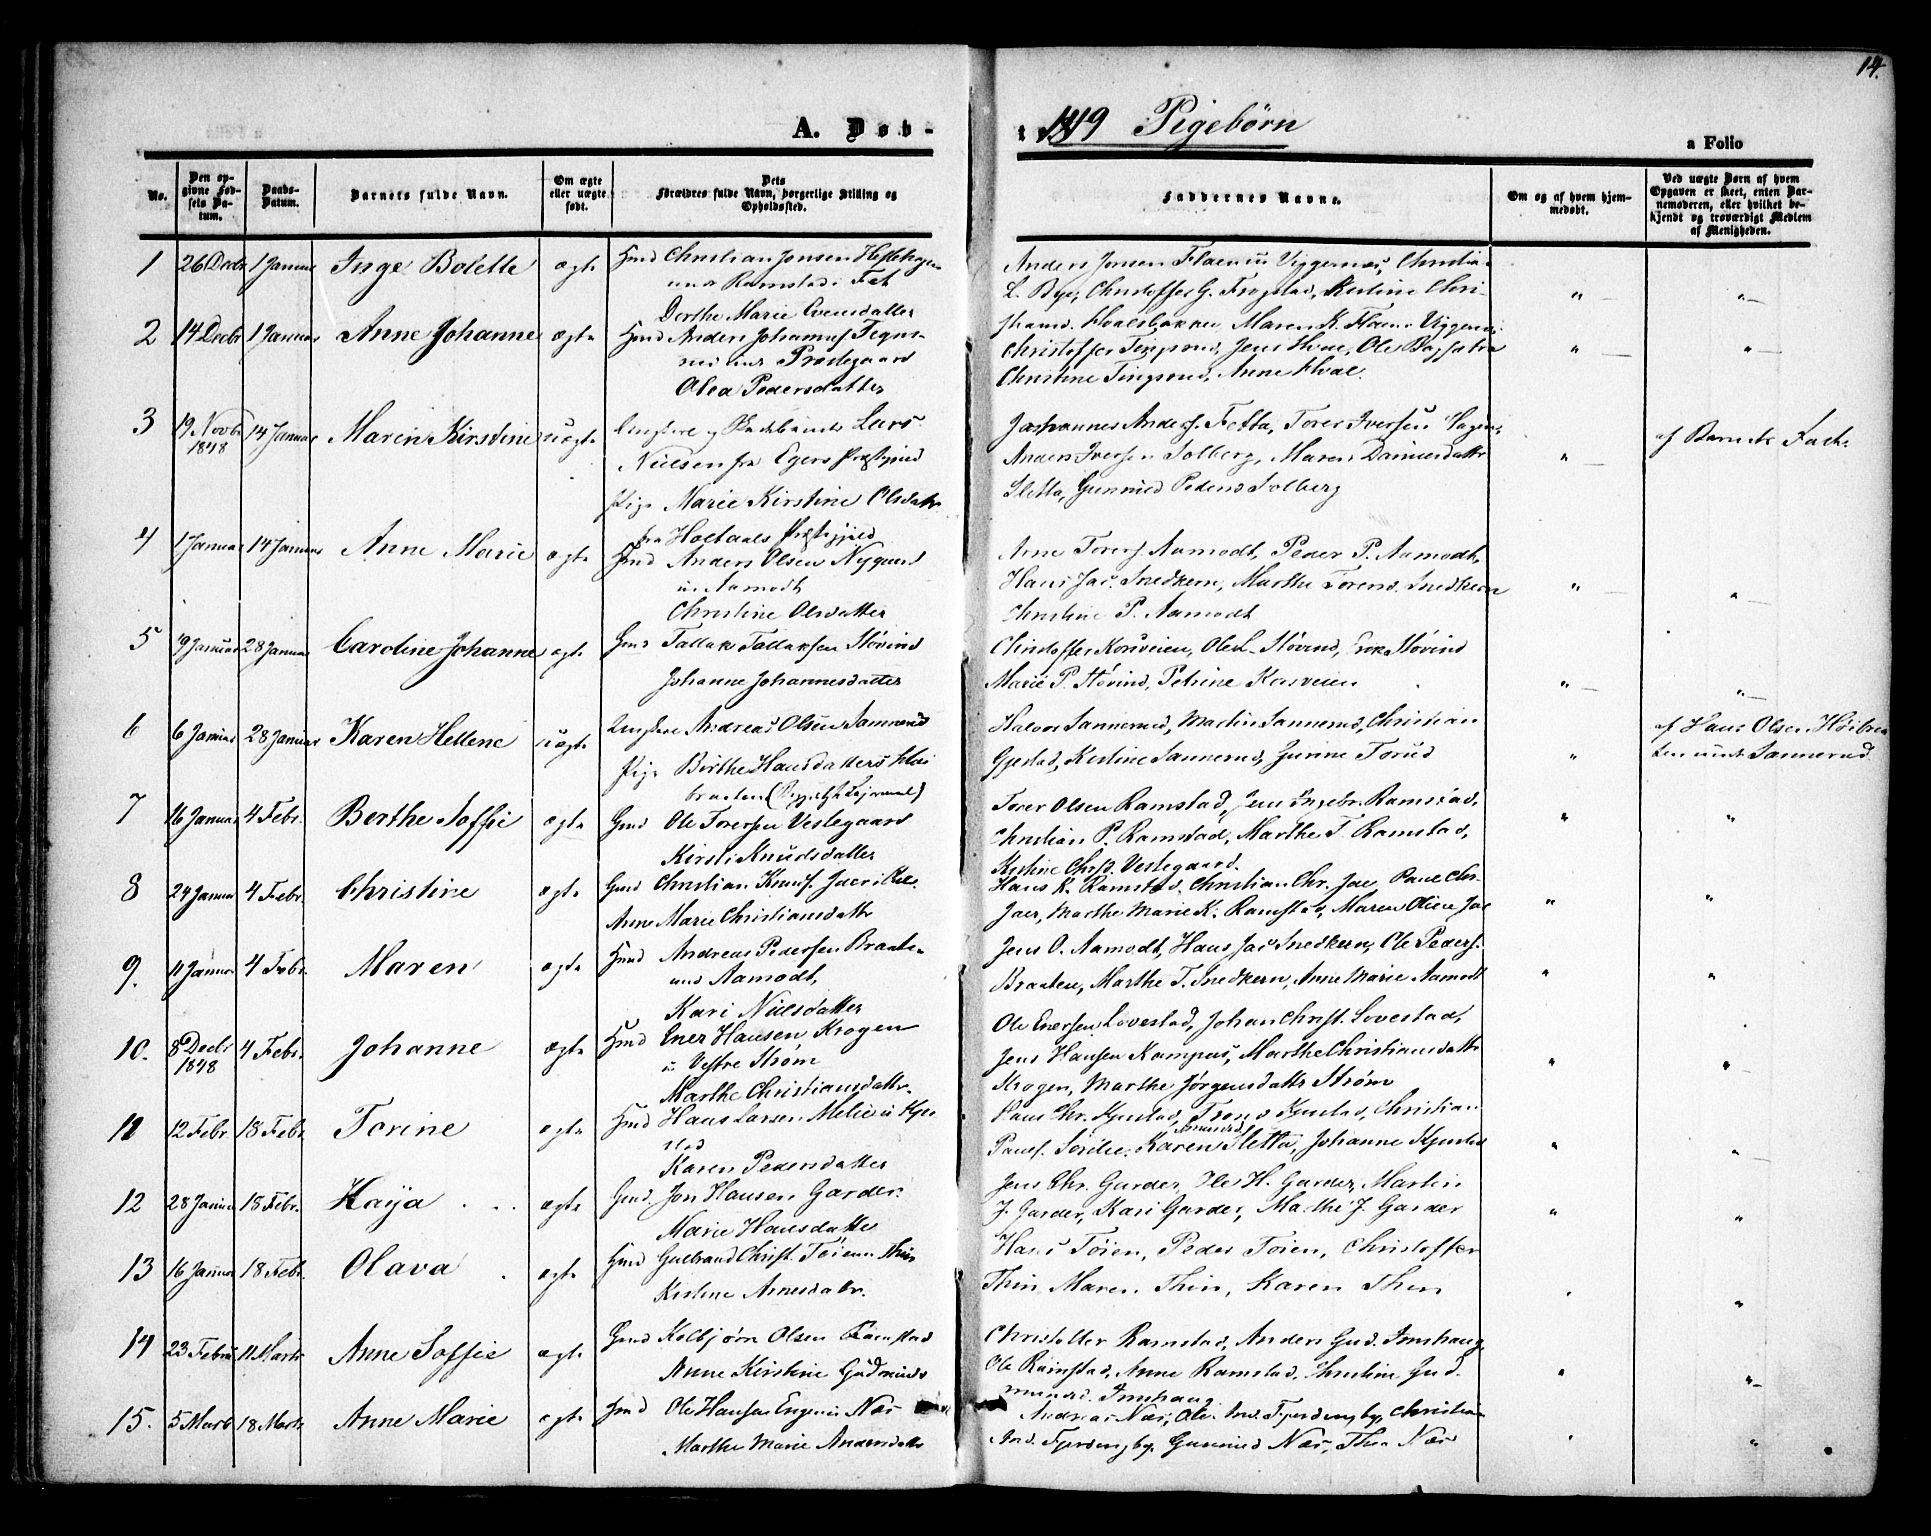 14.
A. Døb-
t 1849 Pigebørn
a Folio
No.
Den opgivne Fødsels Datum.
Daabs-Datum.
Barnets fulde Navn.
Om ægte eller uægte født.
Dets Forældres fulde Navn, borgerlige Stilling og Opholdssted.
Faddernes Navne.
Om og af hvem hjemmedøbt.
Ved uægte Børn af hvem Opgaven er skeet, enten Barnemoderen, eller hvilket bekjendt og troværdigt Medlem af Menigheden.
1 26 Decbr 1 Januar Inge Bolette ægte Hmd Christian Jensen
Ramstad i Fet
Dorthe Marie Evensdatter
L. Bye, Christoffer G. Frogstad, Kirstine Chri-
2 14 Decbr 1 Januar Anne Johanne ægte Hmd Anders Johannes
Prestegaard
Olea Pedersdatter
Christoffer Tingsrud, Jens Hvae, Ole
Christine Tingsrud, Anne Hvae.
3 19 Novbr 1848 14 Januar Maren Kirstine uægte Lars
Nielsen fra Egers Præstegjeld
Pige Marie Kirstine Olsdatr
fra Høelaals Præstegjeld
Johannes Anders. Fetta, Torer Iversen
Anders Iversen Solberg, Maren
Sletta, Gunnild Peders. Solberg
af Barnets Fader
4 1 Januar 14 Januar Anne Marie ægte Hmd Anders Olsen Nygaard
u. Aamodt
Christine Olsdatter
Arne Torers. Aamodt, Peder P. Aamodt,
Hans Jac. Snedkern, Marthe Torersd. Snedkern
Christine P. Aamodt
5 9 Januar 28 Januar Caroline Johanne ægte Gmd Tallak Tallaksen Støvind
Johanne Johannesdatter
Christoffer Korsveien, Ole L. Støvind, Erik Støvind
Marie P. Støvind, Petrine Korsveien
6 6 Januar 28 Januar Karen Hellene uægte Ungkarl Andreas Olsen Sannerud
Pige Birthe Hansdatter
braaten
Halvor Sannerud, Martin Sannerud, Christian
Gjestad, Kirstine Sannerud, Gunne Torud
af Hans Olsen Høibraa-
ten und. Sannerud
7 16 Januar 4 Febr. Berthe Soffie ægte Gmd Ole Torersen Vestegaard
Kirsti Knudsdatter
Torer Olsen Ramstad, Jens Ingebr. Ramstad,
Christian P. Ramstad, Marthe T. Ramstad,
Kirstine Chrs. Vestegaard.
8 24 Januar 4 Febr. Christine ægte Gmd Christian Knuds. Jaer
Anne Marie Christiansdatr
Hans K. Ramstad, Christian Chr. Jae, Paul Chr.
Jaer, Marthe Marie K. Ramstad, Maren Oline Jae
9. 11 Januar 4 Febr. Maren ægte Hmd Andreas Pedersen Braate-
und Aamodt,
Kari Nielsdatter
Jens O. Aamodt, Hans Jac Snedkern, Ole Peders.
Braaten, Marthe T. Snedkern, Anne Marie Aamodt
10. 8 Decbr 1848 4 Febr. Johanne ægte Hmd Ener Hansen Krogen
u. Vestre Strøm
Marthe Christiansdatr.
Ole Enersen Lovestad, Johan Christ. Lovestad,
Jens Hansen Kampus, Marthe Christiansdatr
Krogen, Marthe Jørgensdatter Strøm
11 12 Febr 18 Febr. Torine ægte Hmd Hans Larsen Melie u Kjen
stad
Karen Pedersdatter
Hans Chr. Kjenstad, Trond Kjenstad, Christian
Pauls. Sørlie, Karen Sletta, Johanne Kjenstad
12 28 Januar 18 Febr. Kaija ægte Gmd. Jon Hansen Garder.
Marie Hansdatter
Jens Chr. Garder, Ole H. Garder, Martin
J. Garder, Kari Garder, Mathe J. Garder
13 16 Januar 18 Febr. Olava ægte Hmd Gulbrand Christ. Tøien u. Thin
Kirstine Arnesdatr.
Hans Tøien, Peder Tøien, Christoffer
Thin, Maren Thin, Karen Thin
14 23 Februar 11 Marts Anne Soffie ægte Gmd Kolbjørn Olsen Ramstad
Anne Kirstine Gudmunds
Christoffer Ramstad, Anders Gud. Imshaug,
Ole Ramstad, Anne Ramstad, Christine Gud.
mundsd. Imshaug
15. 5 Marts 18 Marts Anne Marie ægte Hmd Ole Hansen Engen u. Næs
Marthe Marie Andersdatr
Andreas Næs, Ole And. Fjerdingby, Christian
And. Fjerdingby, Gunnild Næs, Thea Næs